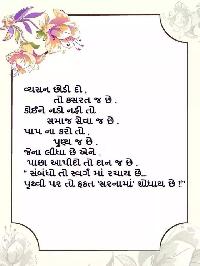 વ્યસન છોડી દો .
તો કસરત જ છે .
કોઈને નડો નહી તો
સમાજ સેવા જ છે .
પાપ ના કરો તો .
પુણ્ય જ છે .
જેના લીધા છે એને .
પાછા આપીદો તો દાન જ છે .
" સંબંધો તો સ્વર્ગ માં રચાય છે...
પૃથ્વી પર તો ફકત 'સરનામાં' શોધાય છે !"